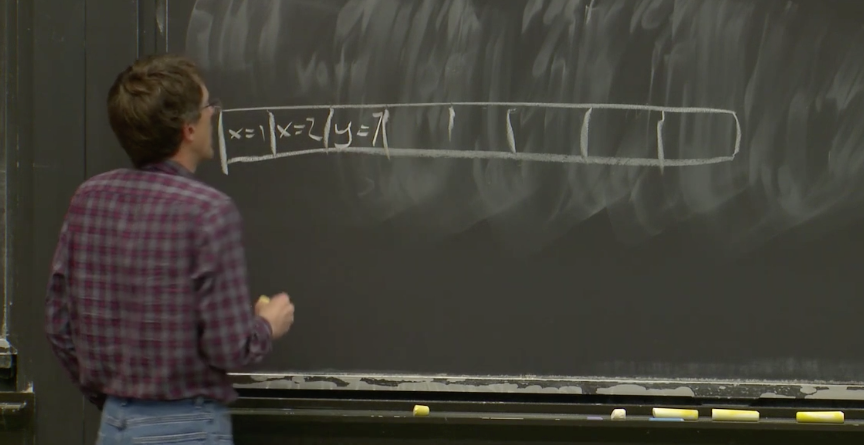 x=1 x=2 y=7